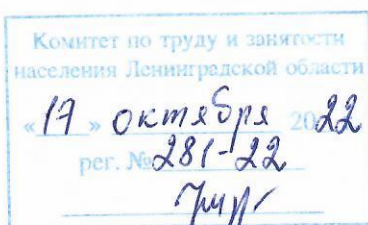 Комитет по труду и занятости
населения Ленинградской области
«17» октября 2022
рег. №281-22